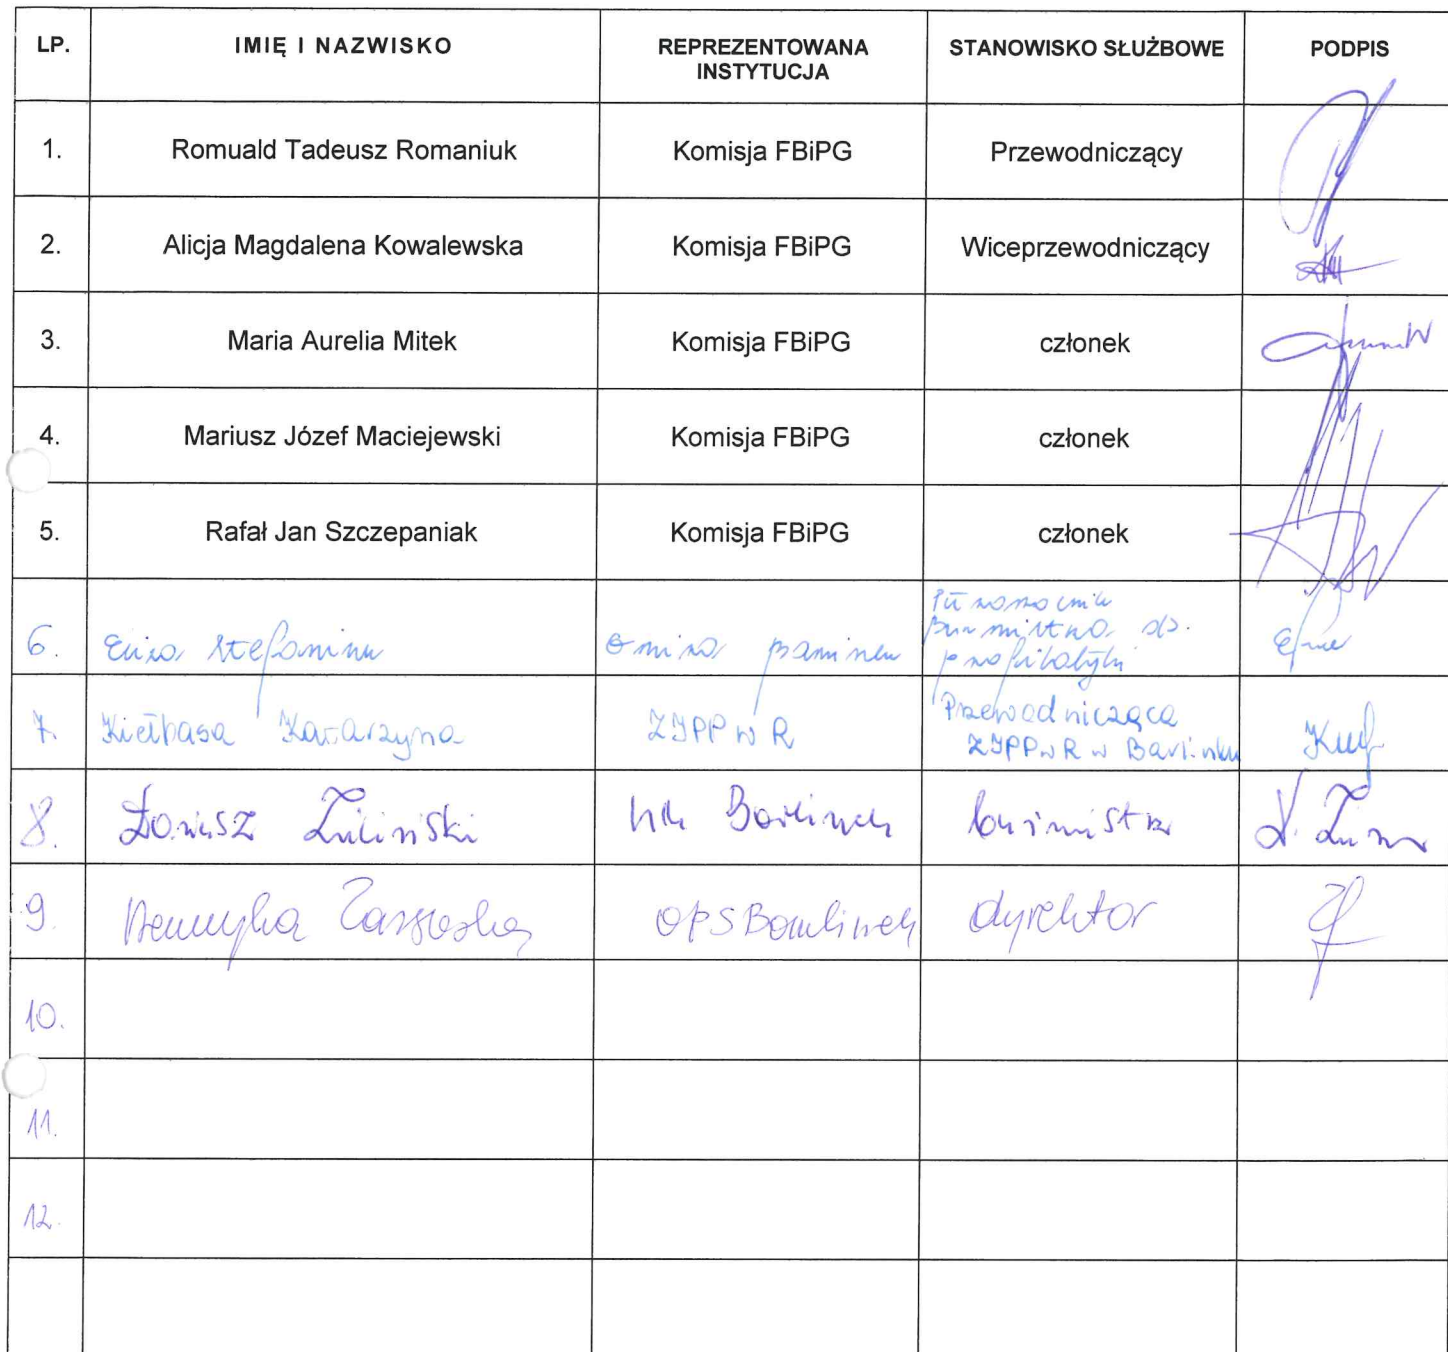 LP. IMIĘ I NAZWISKO REPREZENTOWANA INSTYTUCJA STANOWISKO SŁUŻBOWE PODPIS
1. Romuald Tadeusz Romaniuk Komisja FBiPG Przewodniczący
2. Alicja Magdalena Kowalewska Komisja FBiPG Wiceprzewodniczący
3. Maria Aurelia Mitek Komisja FBiPG członek
4. Mariusz Józef Maciejewski Komisja FBiPG członek
5. Rafał Jan Szczepaniak Komisja FBiPG członek
6.
7. Kiełbasa Katarzyna ZIPPwR Przewodnicząca ZIPPwR w Barlinku
8. Dariusz Zieliński Barlinek burmistrz
9. OPS Barlinek dyrektor
10.
11.
12.